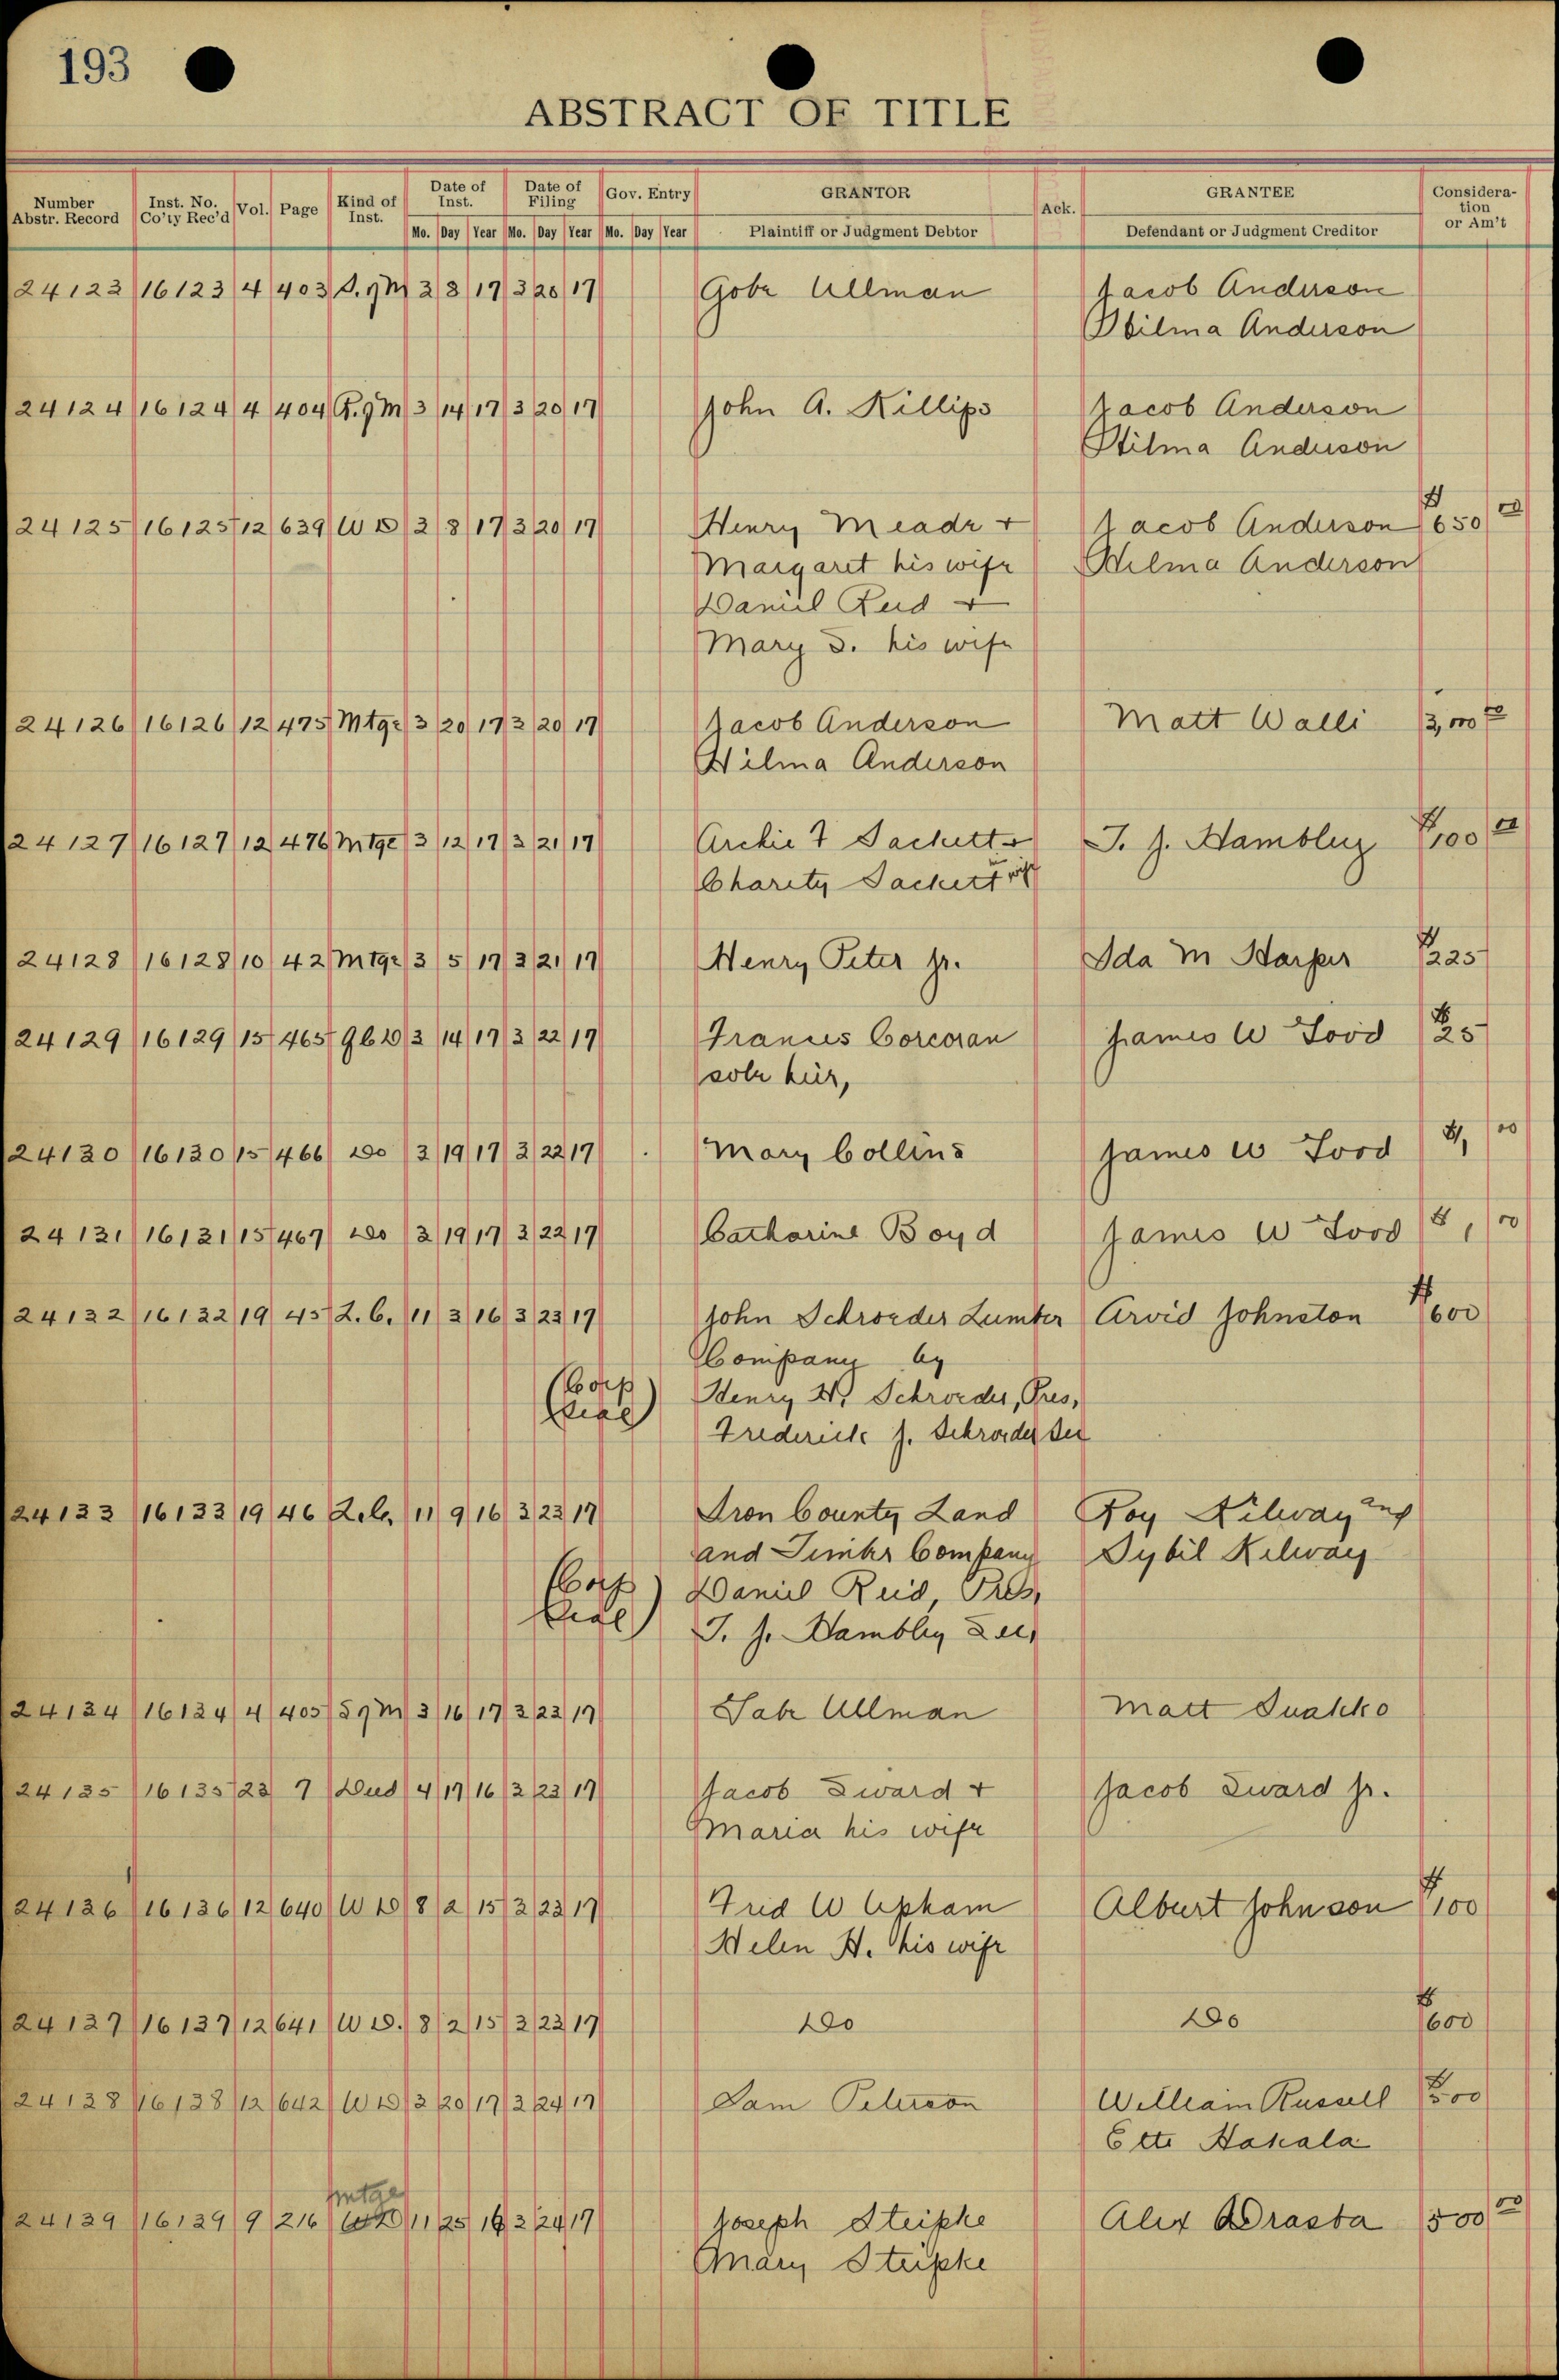 193
ABSTRACT OF TITLE
Number Abstr. Record | Inst. No. Co'ty Rec'd | Vol. | Page | Kind of Inst. | Date of Inst. Mo. Day Year | Date of Filing Mo. Day Year | Gov. Entry Mo. Day Year | GRANTOR Plaintiff or Judgment Debtor | Ack. | GRANTEE Defendant or Judgment Creditor | Considera-tion or Am't
24123 16123 4 403 S.9M 3 8 17 3 20 17 Gobe Ullman Jacob Anderson
Hilma Anderson
24124 16124 4 404 R.9M 3 14 17 3 20 17 John A. Killips Jacob Anderson
Hilma Anderson
24125 16125 12 639 W D 3 8 17 3 20 17 Henry Meade + Jacob Anderson $650 00
Margaret his wife Hilma Anderson
Daniel Reid +
Mary S. his wife
24126 16126 12 475 Mtge 3 20 17 3 20 17 Jacob Anderson Matt Walli 3,000 00
Hilma Anderson
24127 16127 12 476 Mtge 3 12 17 3 21 17 Archie F Sackett + T. J. Hambley $100 00
Charity Sackett his wife
24128 16128 10 42 Mtge 3 5 17 3 21 17 Henry Peter Jr. Ida M Harper $225
24129 16129 15 465 QCD 3 14 17 3 22 17 Francis Corcoran James W Good $25
sole heir,
24130 16130 15 466 Do 3 19 17 3 22 17 Mary Collins James W Good $1, 00
24131 16131 15 467 Do 3 19 17 3 22 17 Catharine Boyd James W Good $1, 00
24132 16132 19 45 L.C. 11 3 16 3 23 17 John Schroeder Lumber Arvid Johnston $600
Company by
(Corp Henry W. Schroeder, Pres,
Seal) Frederick J. Schroeder Sec
24133 16133 19 46 L.C. 11 9 16 3 23 17 Iron County Land Roy Kilway and
and Timber Company Sybil Kilway
(Corp Daniel Reid, Pres,
Seal) T. J. Hambley Sec,
24134 16134 4 405 S9M 3 16 17 3 23 17 Gabe Ullman Matt
24135 16135 23 7 Deed 4 17 16 3 23 17 Jacob Sward + Jacob Sward Jr.
Maria his wife
24136 16136 12 640 W D 8 2 15 3 23 17 Fred W Upham Albert Johnson $100
Helen H. his wife
24137 16137 12 641 W D. 8 2 15 3 23 17 Do Do $600
24138 16138 12 642 W D 3 20 17 3 24 17 Sam Peterson William Russell $500
Ette Hakala
Mtge
24139 16139 9 216 WD 11 25 16 3 24 17 Joseph Steipke Alex Drasba 500 00
Mary Steipke